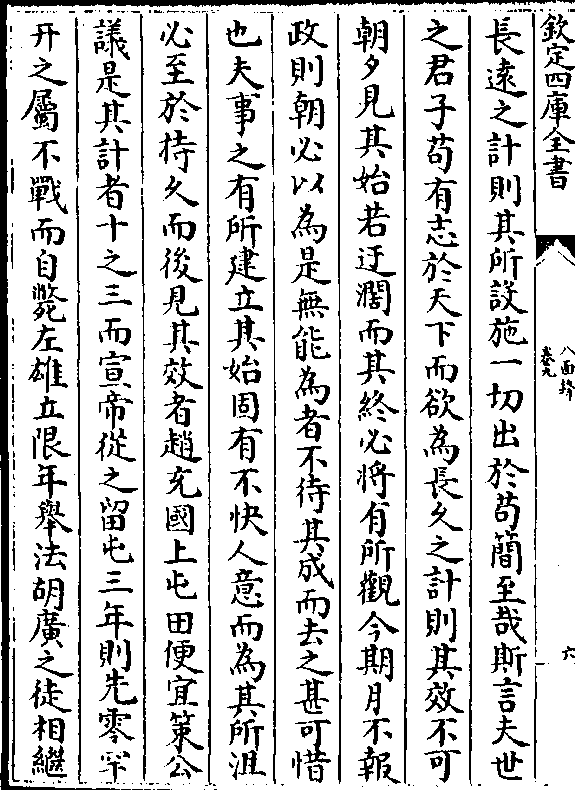 欽定四庫全書
八面鋒
卷九
六
長遠之計則其所設施一切出於苟簡至哉斯言夫世
之君子苟有志於天下而欲為長久之計則其效不可
朝夕見其始若迂濶而其終必將有所觀今期月不報
政則朝必以為是無能為者不待其成而去之甚可惜
也夫事之有所建立其始固有不快人意而為其所沮
必至於持久而後見其效者趙充國上屯田便宜策公
議是其計者十之三而宣帝從之留屯三年則先零罕
幵之屬不戰而自斃左雄立限年舉法胡廣之徒相繼